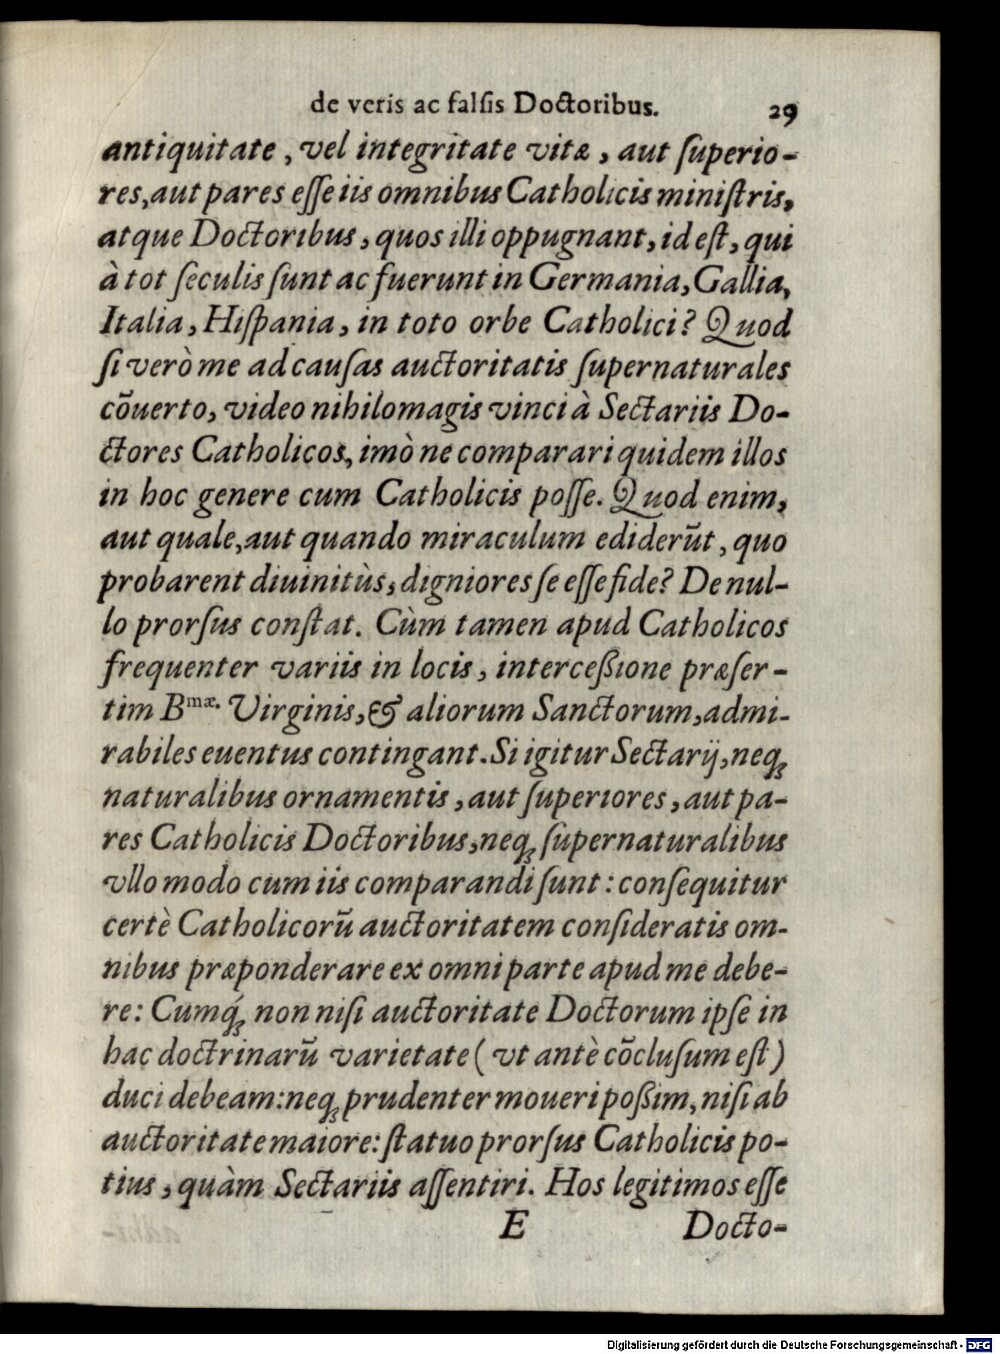 de veris ac falsis Doctoribus. 29
antiquitate, vel integritate vitæ, aut ſuperio-
res, aut pares eſſe iis omnibus Catholicis miniſtris,
atque Doctoribus, quos illi oppugnant, id eſt, qui
à tot ſeculis ſunt ac fuerunt in Germania, Gallia,
Italia, Hiſpania, in toto orbe Catholici? Quod
ſi verò me ad cauſas auctoritatis ſupernaturales
cõuerto, video nihilo magis vinci à Sectariis Do-
ctores Catholicos, imò ne comparari quidem illos
in hoc genere cum Catholicis poſſe. Quod enim,
aut quale, aut quando miraculum ediderũt, quo
probarent diuinitùs, digniores ſe eſſe fide? De nul-
lo prorſus conſtat. Cùm tamen apud Catholicos
frequenter variis in locis, interceßione præſer-
tim Bmæ. Virginis, & aliorum Sanctorum, admi-
rabiles euentus contingant. Si igitur Sectarij, neqꝫ
naturalibus ornamentis, aut ſuperiores, aut pa-
res Catholicis Doctoribus, neqꝫ ſupernaturalibus
vllo modo cum iis comparandi ſunt: conſequitur
certè Catholicorũ auctoritatem conſideratis om-
nibus præponderare ex omni parte apud me debe-
re: Cumq́ꝫ non niſi auctoritate Doctorum ipſe in
hac doctrinarũ varietate (vt antè cõcluſum eſt)
duci debeam: neqꝫ prudenter moueri poßim, niſi ab
auctoritate maiore: ſtatuo prorſus Catholicis po-
tius, quàm Sectariis aſſentiri. Hos legitimos eſſe
E Docto-
Digitalisierung gefördert durch die Deutsche Forschungsgemeinschaft - DFG